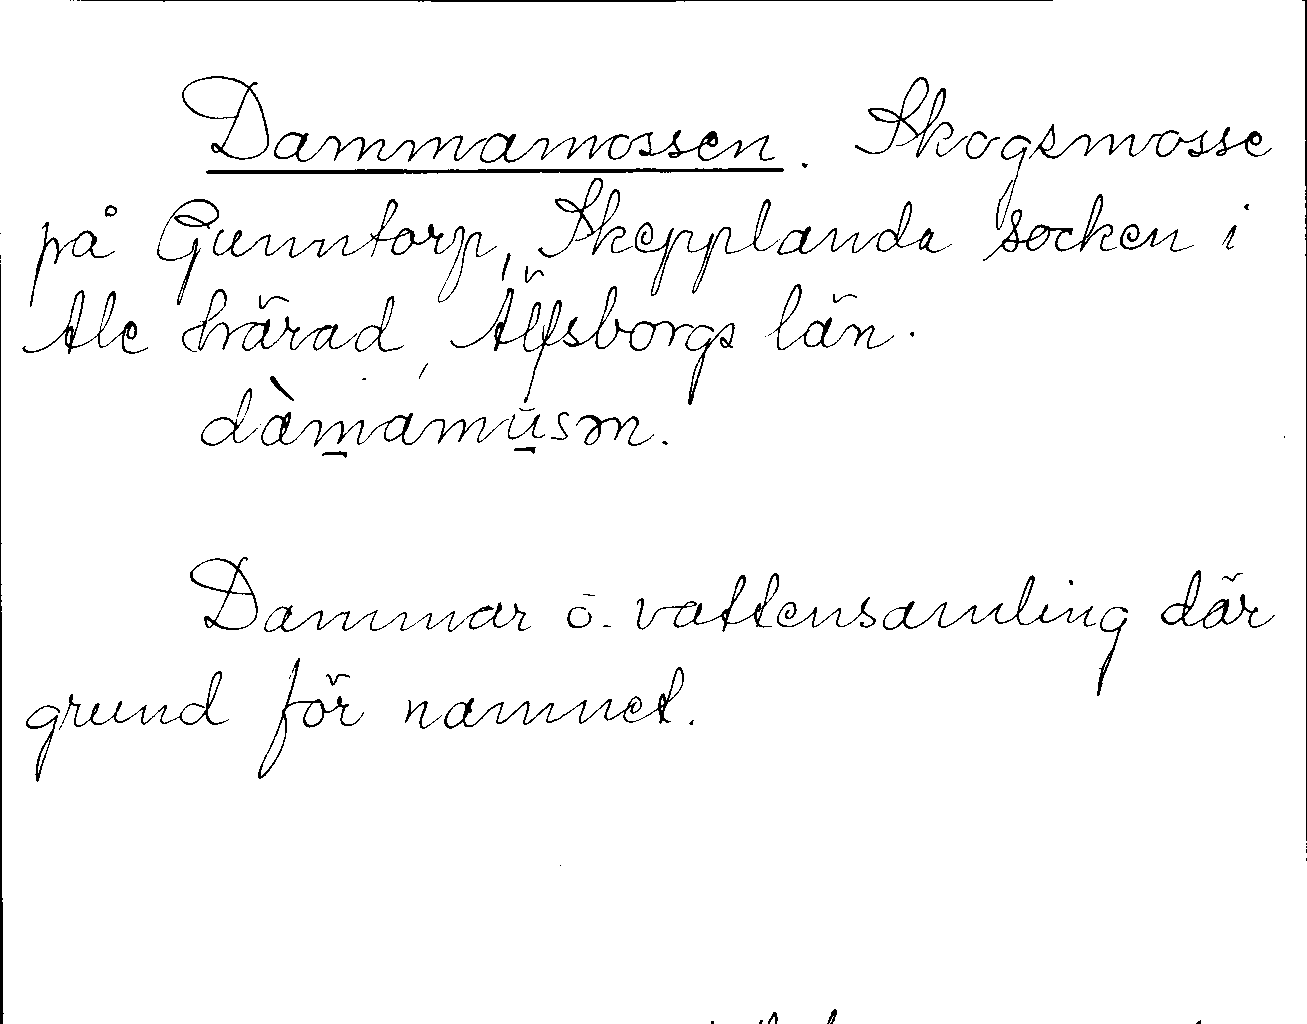 Dammamossen. Skogsmosse
på Gunntorp, Skepplanda socken i
Ale härad, Älfsborgs län.
dàm̲amu̲sən.
Dammar o. vattensamling där
grund för namnet.